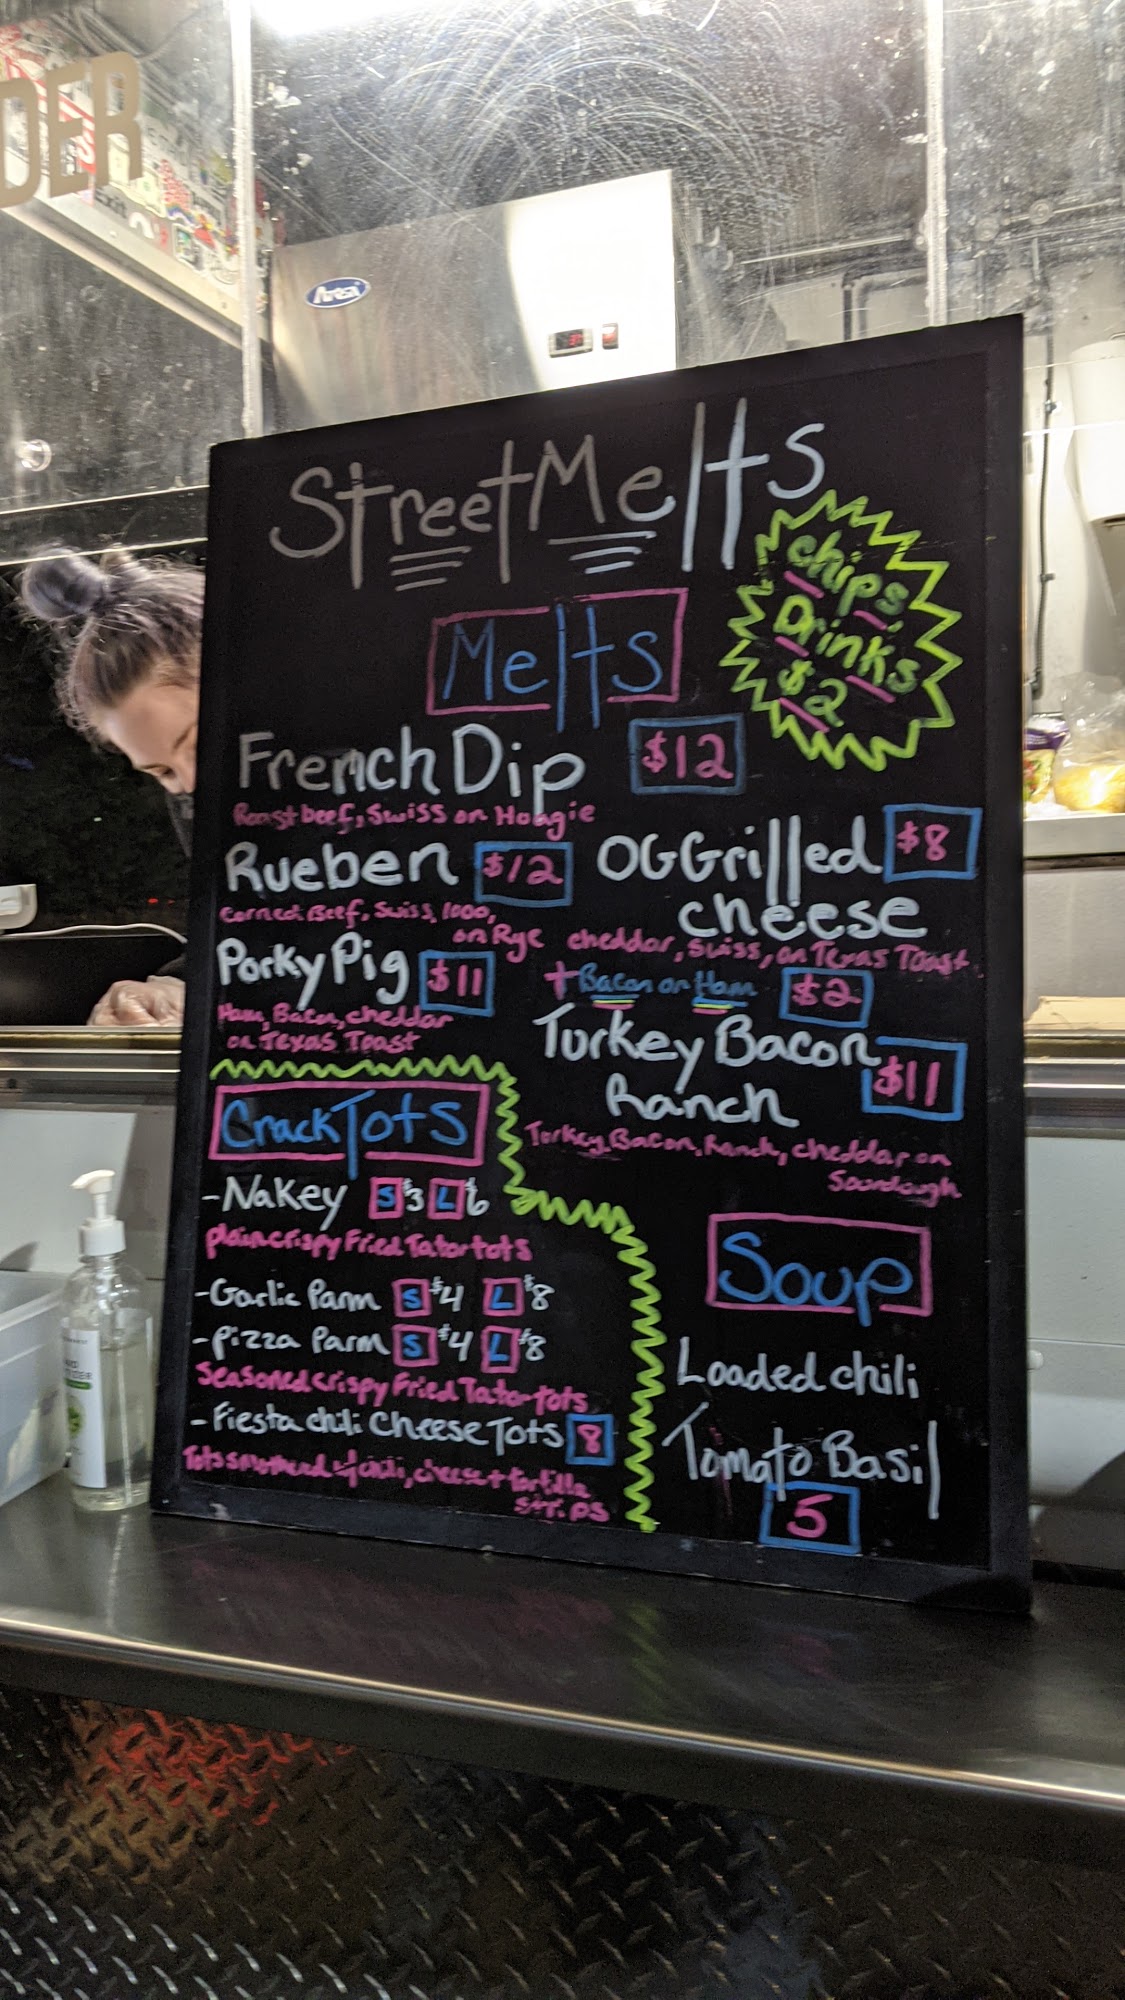 DER
Arctic
StreetMelts
chips,
Drinks
$2
Melts
French Dip $12
Roast beef, Swiss on Hoagie
Rueben $12
Corned Beef, Swiss, 1000,
on Rye
Porky Pig $11
Ham, Bacon, cheddar
on Texas Toast
OG Grilled $8
cheese
cheddar, Swiss, on Texas Toast
+ Bacon or Ham $2
Turkey Bacon
Ranch $11
Turkey, Bacon, Ranch, cheddar on
Sourdough
CrackTots
-Nakey S $3 L $6
plain crispy Fried Tator tots
-Garlic Parm S $4 L $8
-Pizza Parm S $4 L $8
Seasoned crispy Fried Tator tots
-Fiesta chili Cheese Tots 8
Tots smothered chili, cheese + tortilla
strips
Soup
Loaded chili
Tomato Basil
5